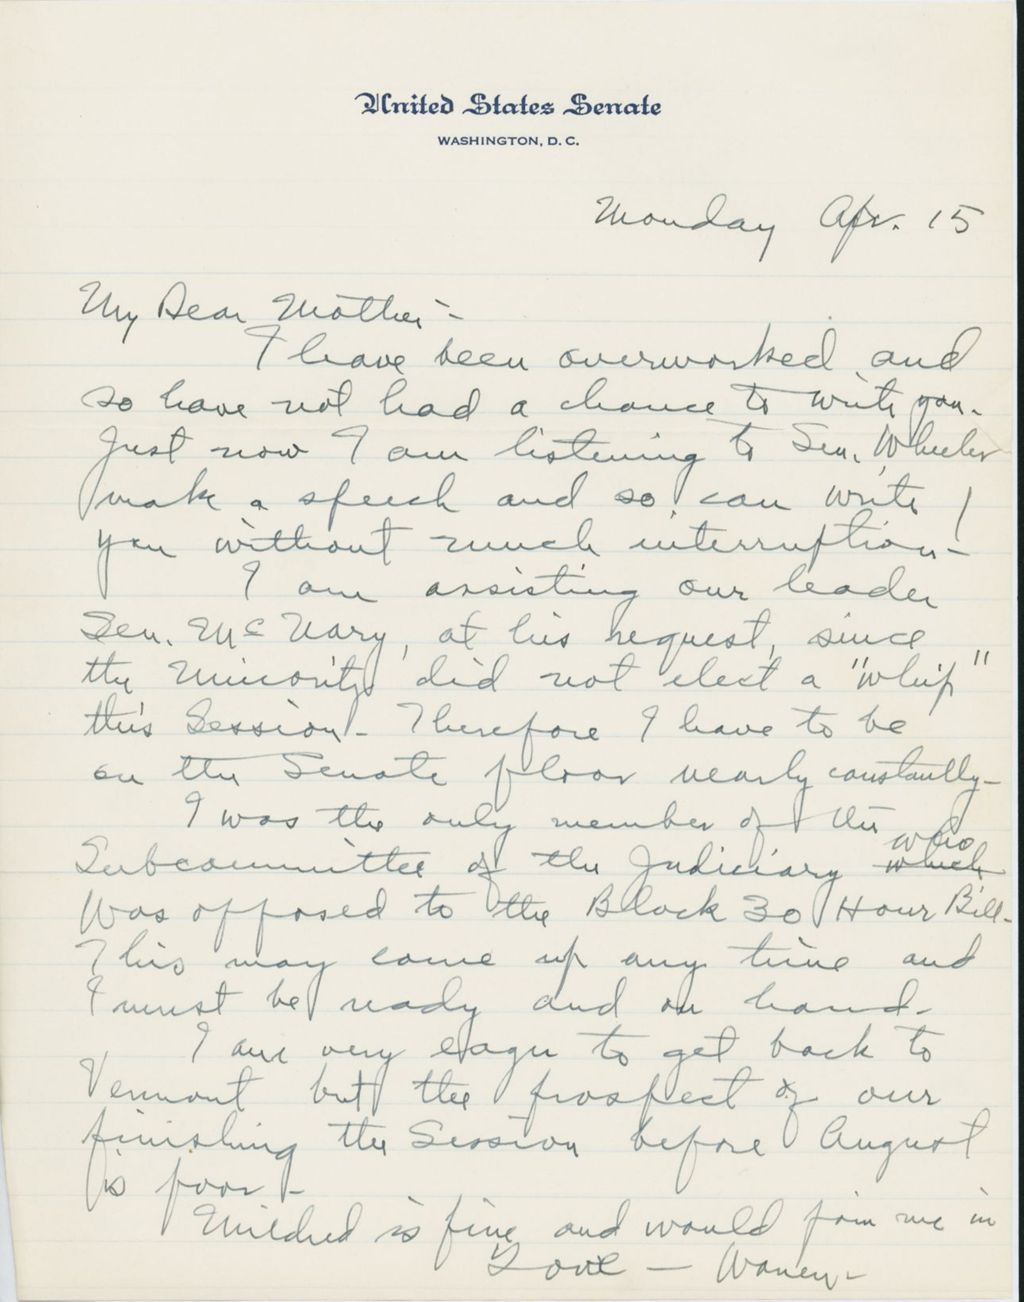 United States Senate
WASHINGTON, D. C.
Monday Apr. 15
My Dear Mother -
I have been overworked and
so have not had a chance to write you.
Just now I am listening to Sen. Wheeler
make a speech and so can write
you without much interruption -
I am assisting our leader
Sen. McNary, at his request, since
the Minority did not elect a "whip"
this Session - Therefore I have to be
on the Senate floor nearly constantly -
I was the only member of the
Subcommittee of the Judiciary which who
was opposed to the Black 30 Hour Bill -
This may come up any time and
I must be ready and on hand -
I am very eager to get back to
Vermont but the prospect of our
finishing the Session before August
is poor -
Mildred is fine and would join me in
Love - Warren -